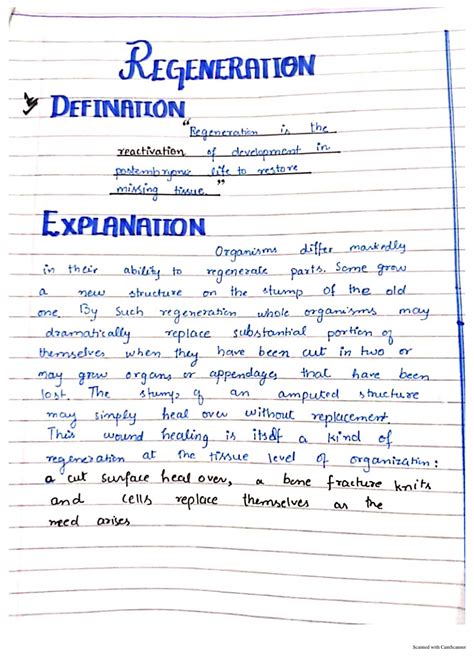 REGENERATION
DEFINATION
"Regeneration is the
reactivation of development in
postembryonic life to restore
missing tissue."
EXPLANATION
Organisms differ markedly
in their ability to regenerate parts. Some grow
a new structure on the stump of the old
one. By such regeneration whole organisms may
dramatically replace substantial portion of
themselves when they have been cut in two or
may grow organs or appendages that have been
lost. The stump of an amputed structure
may simply heal over without replacement.
This wound healing is itself a kind of
regeneration at the tissue level of organization:
a cut surface heal over, a bone fracture knits
and cells replace themselves as the
need arises
Scanned with CamScanner